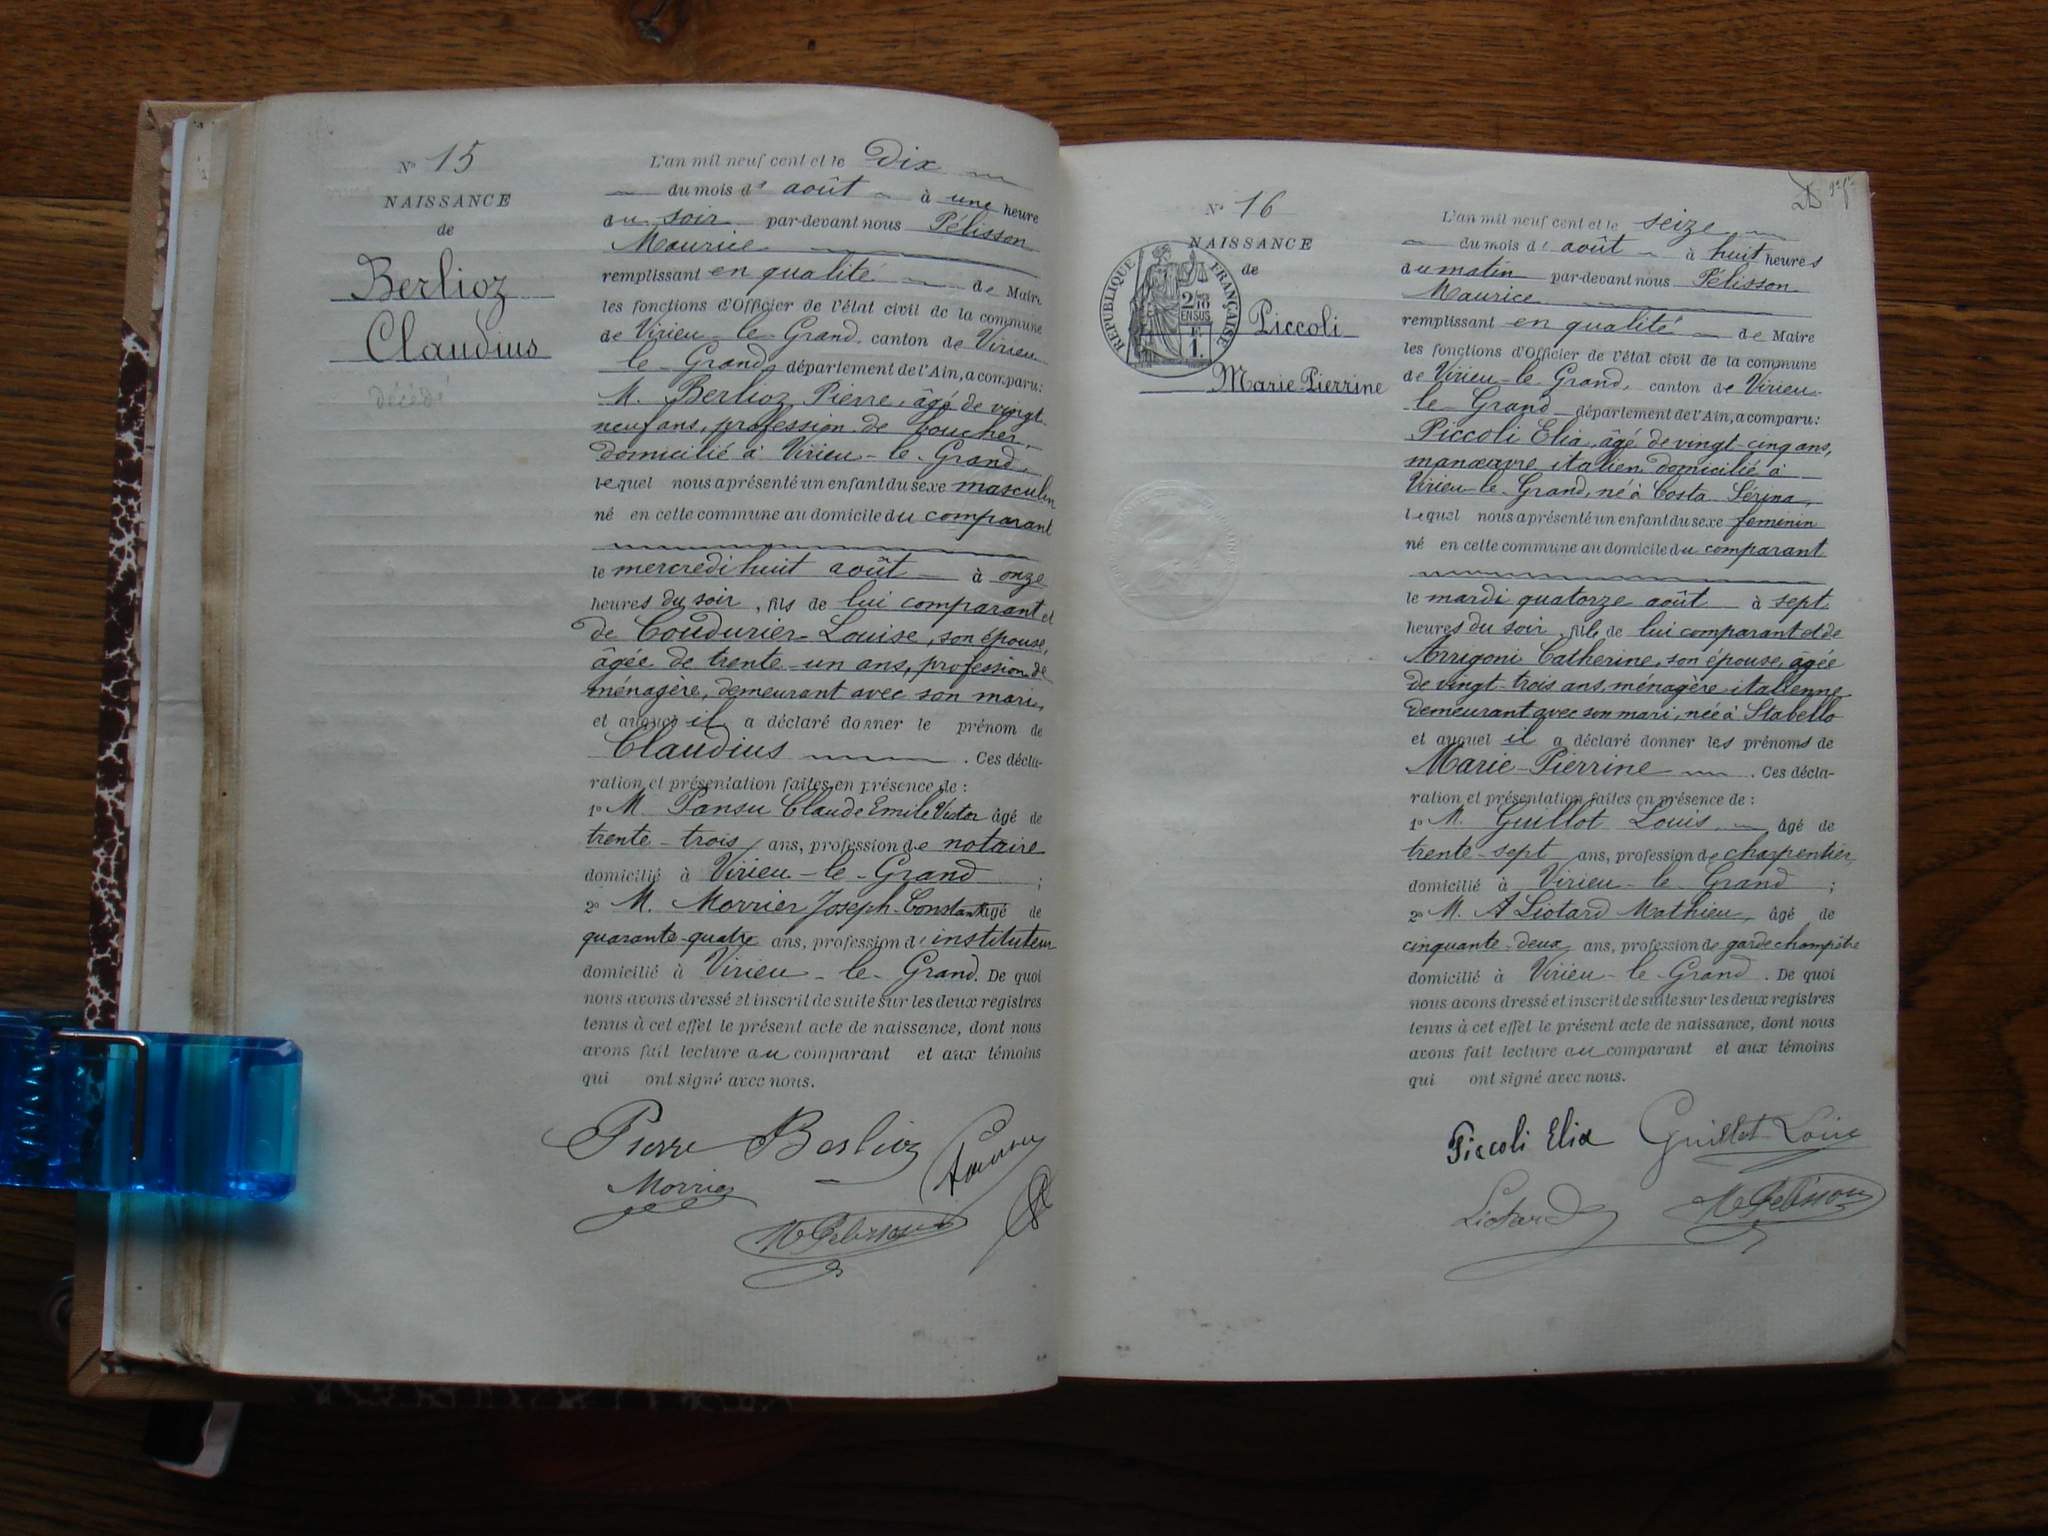 No 15
NAISSANCE
de
Berlioz
Claudius
décédé
L'an mil neuf cent et le Dix
du mois d' août à une heure
du soir par-devant nous Pélisson
Maurice
remplissant en qualité de Maire
les fonctions d'Officier de l'état civil de la commune
de Virieu-le-Grand, canton de Virieu
le Grand, département de l'Ain, a comparu:
M. Berlioz Pierre, âgé de vingt
neuf ans, profession de boucher,
domicilié à Virieu-le-Grand,
lequel nous a présenté un enfant du sexe masculin
né en cette commune au domicile du comparant
le mercredi huit août à onze
heures du soir, fils de lui comparant et
de Coudurier Louise, son épouse,
âgée de trente-un ans, profession de
ménagère, demeurant avec son mari,
et auquel il a déclaré donner le prénom de
Claudius. Ces décla-
ration et présentation faites en présence de :
1o M. Pansu Claude Emile Victor âgé de
trente-trois ans, profession de notaire
domicilié à Virieu-le-Grand ;
2o M. Morrier Joseph-Constant âgé de
quarante-quatre ans, profession d' instituteur
domicilié à Virieu-le-Grand. De quoi
nous avons dressé et inscrit de suite sur les deux registres
tenus à cet effet le présent acte de naissance, dont nous
avons fait lecture au comparant et aux témoins
qui ont signé avec nous.
Pierre Berlioz Pansu
Morrier
M Pelisson
No 16
NAISSANCE
de
Piccoli
Marie Pierrine
RÉPUBLIQUE FRANÇAISE
2/10
EN SUS
1.
L'an mil neuf cent et le seize
du mois d' août à huit heures
du matin par-devant nous Pélisson
Maurice
remplissant en qualité de Maire
les fonctions d'Officier de l'état civil de la commune
de Virieu-le-Grand, canton de Virieu-
le Grand département de l'Ain, a comparu:
Piccoli Elia, âgé de vingt-cinq ans,
manœuvre italien, domicilié à
Virieu-le-Grand, né à Costa Sérina,
lequel nous a présenté un enfant du sexe feminin
né en cette commune au domicile du comparant
le mardi quatorze août à sept
heures du soir, fille de lui comparant et de
Arrigoni Catherine, son épouse, âgée
de vingt-trois ans, ménagère italienne
demeurant avec son mari, née à Stabello
et auquel il a déclaré donner les prénoms de
Marie-Pierrine. Ces décla-
ration et présentation faites en présence de :
1o M. Guillot Louis âgé de
trente-sept ans, profession de charpentier,
domicilié à Virieu-le-Grand ;
2o M. A Liotard Mathieu, âgé de
cinquante-deux ans, profession de garde champêtre
domicilié à Virieu-le-Grand. De quoi
nous avons dressé et inscrit de suite sur les deux registres
tenus à cet effet le présent acte de naissance, dont nous
avons fait lecture au comparant et aux témoins
qui ont signé avec nous.
Piccoli Elia Guillot Louis
Liotard M Pelisson